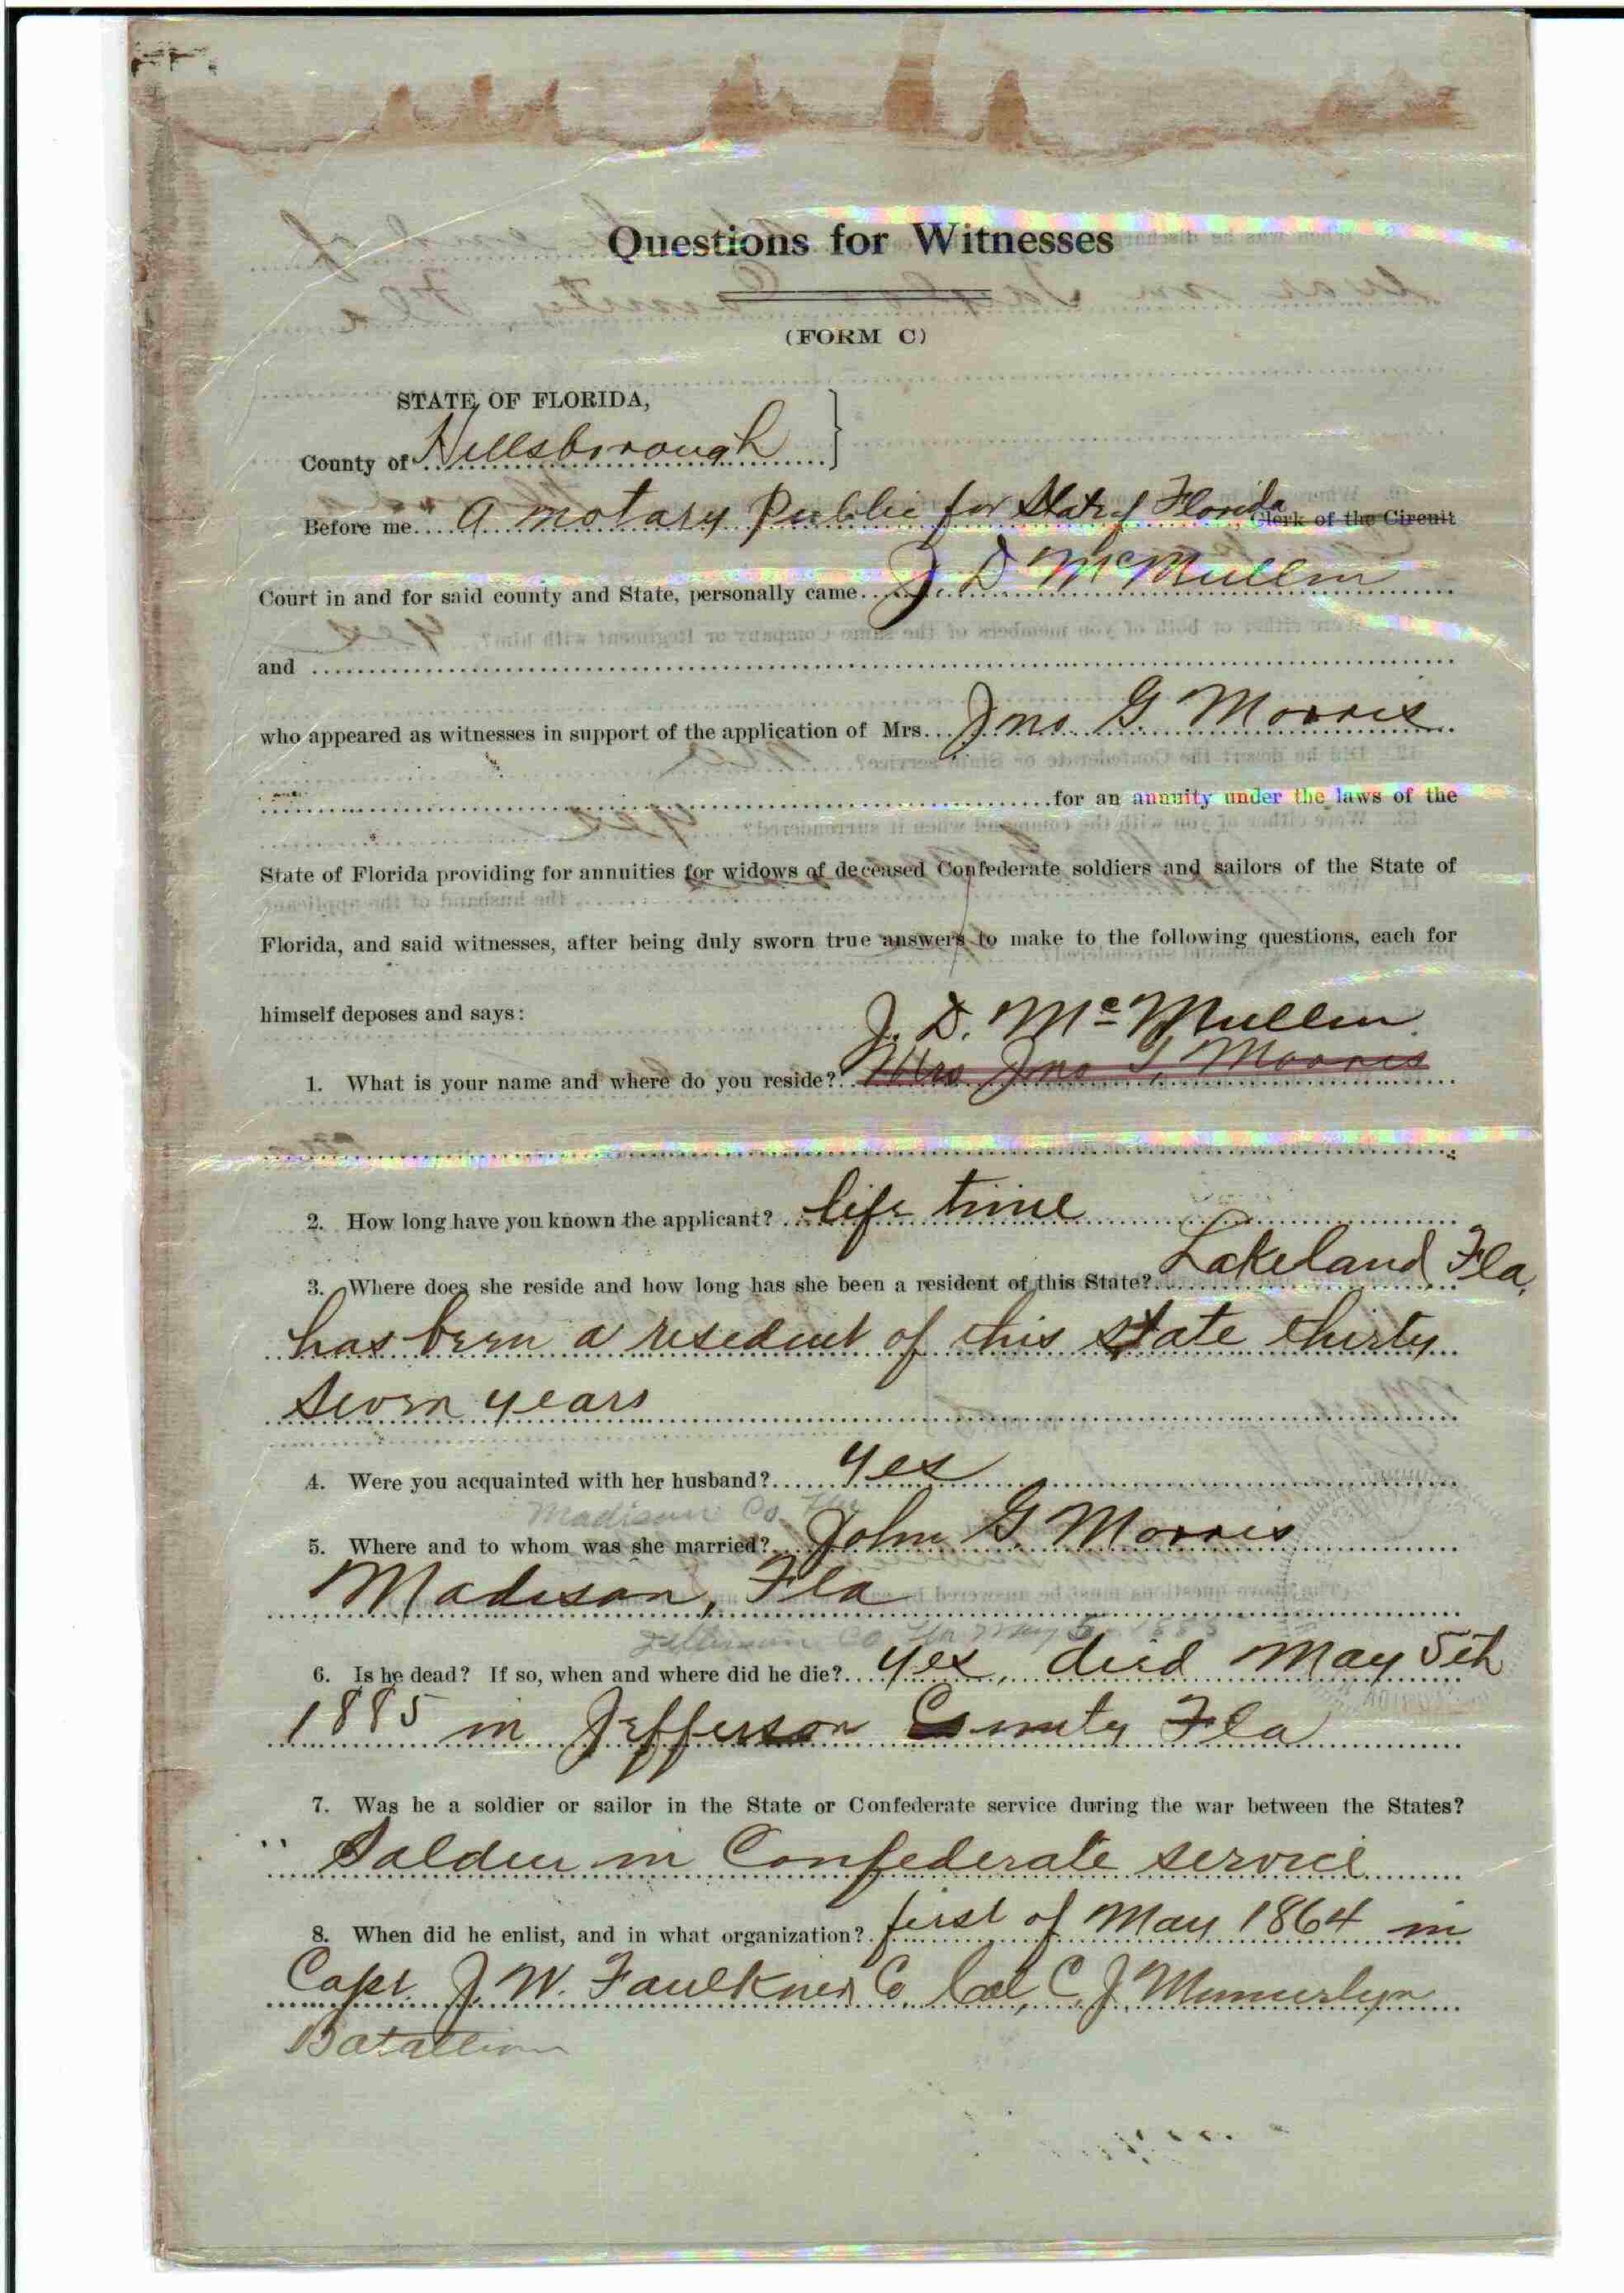 Questions for Witnesses
(FORM C)
STATE OF FLORIDA,
County of Hillsborough
Before me a notary Public for State of Florida, Clerk of the Circuit
Court in and for said county and State, personally came J. D McMullin
and
who appeared as witnesses in support of the application of Mrs. Jno G Morris
for an annuity under the laws of the
State of Florida providing for annuities for widows of deceased Confederate soldiers and sailors of the State of
Florida, and said witnesses, after being duly sworn true answers to make to the following questions, each for
himself deposes and says:
J. D. McMullin
1. What is your name and where do you reside? Mrs Jno G. Morris
2. How long have you known the applicant? life time
3. Where does she reside and how long has she been a resident of this State? Lakeland Fla,
has been a resedent of this state thirty
seven years
4. Were you acquainted with her husband? yes
Madison Co Fla
5. Where and to whom was she married? John G Morris
Madison, Fla
Jefferson Co Fla May 5 1885
6. Is he dead? If so, when and where did he die? yes, died May 5th
1885 in Jefferson County Fla
7. Was he a soldier or sailor in the State or Confederate service during the war between the States?
Soldier in Confederate service
8. When did he enlist, and in what organization? first of May 1864 in
Capt. J. W. Faulkner Co. Col, C. J. Munnerlyn
Batallion